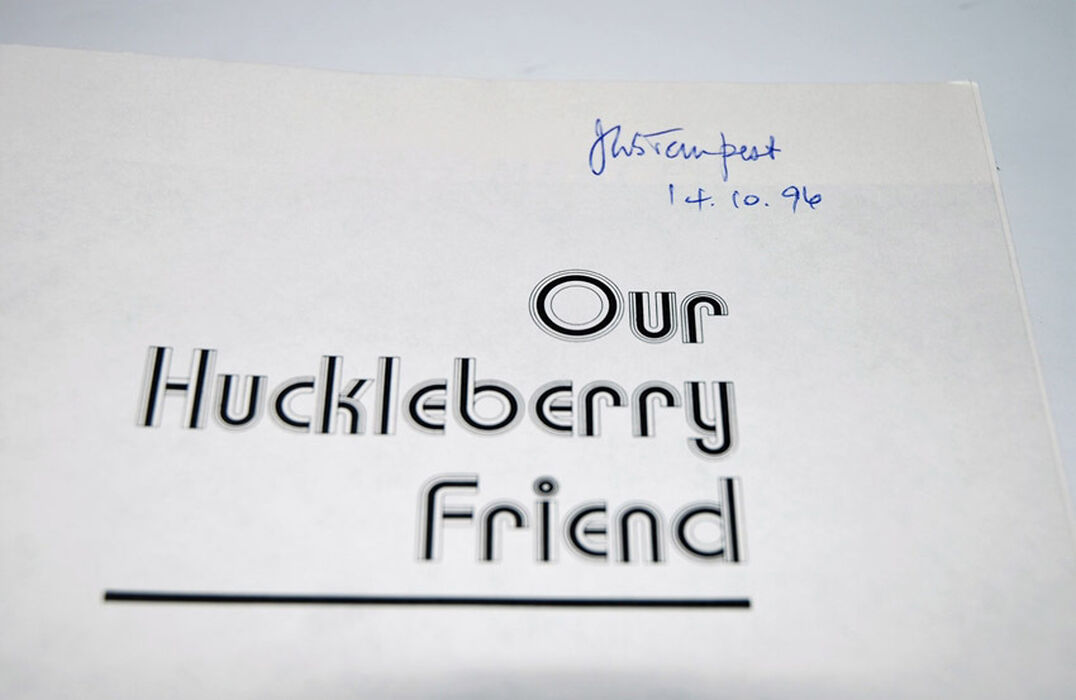 JWSTempest
14.10.96
Our
Huckleberry
Friend